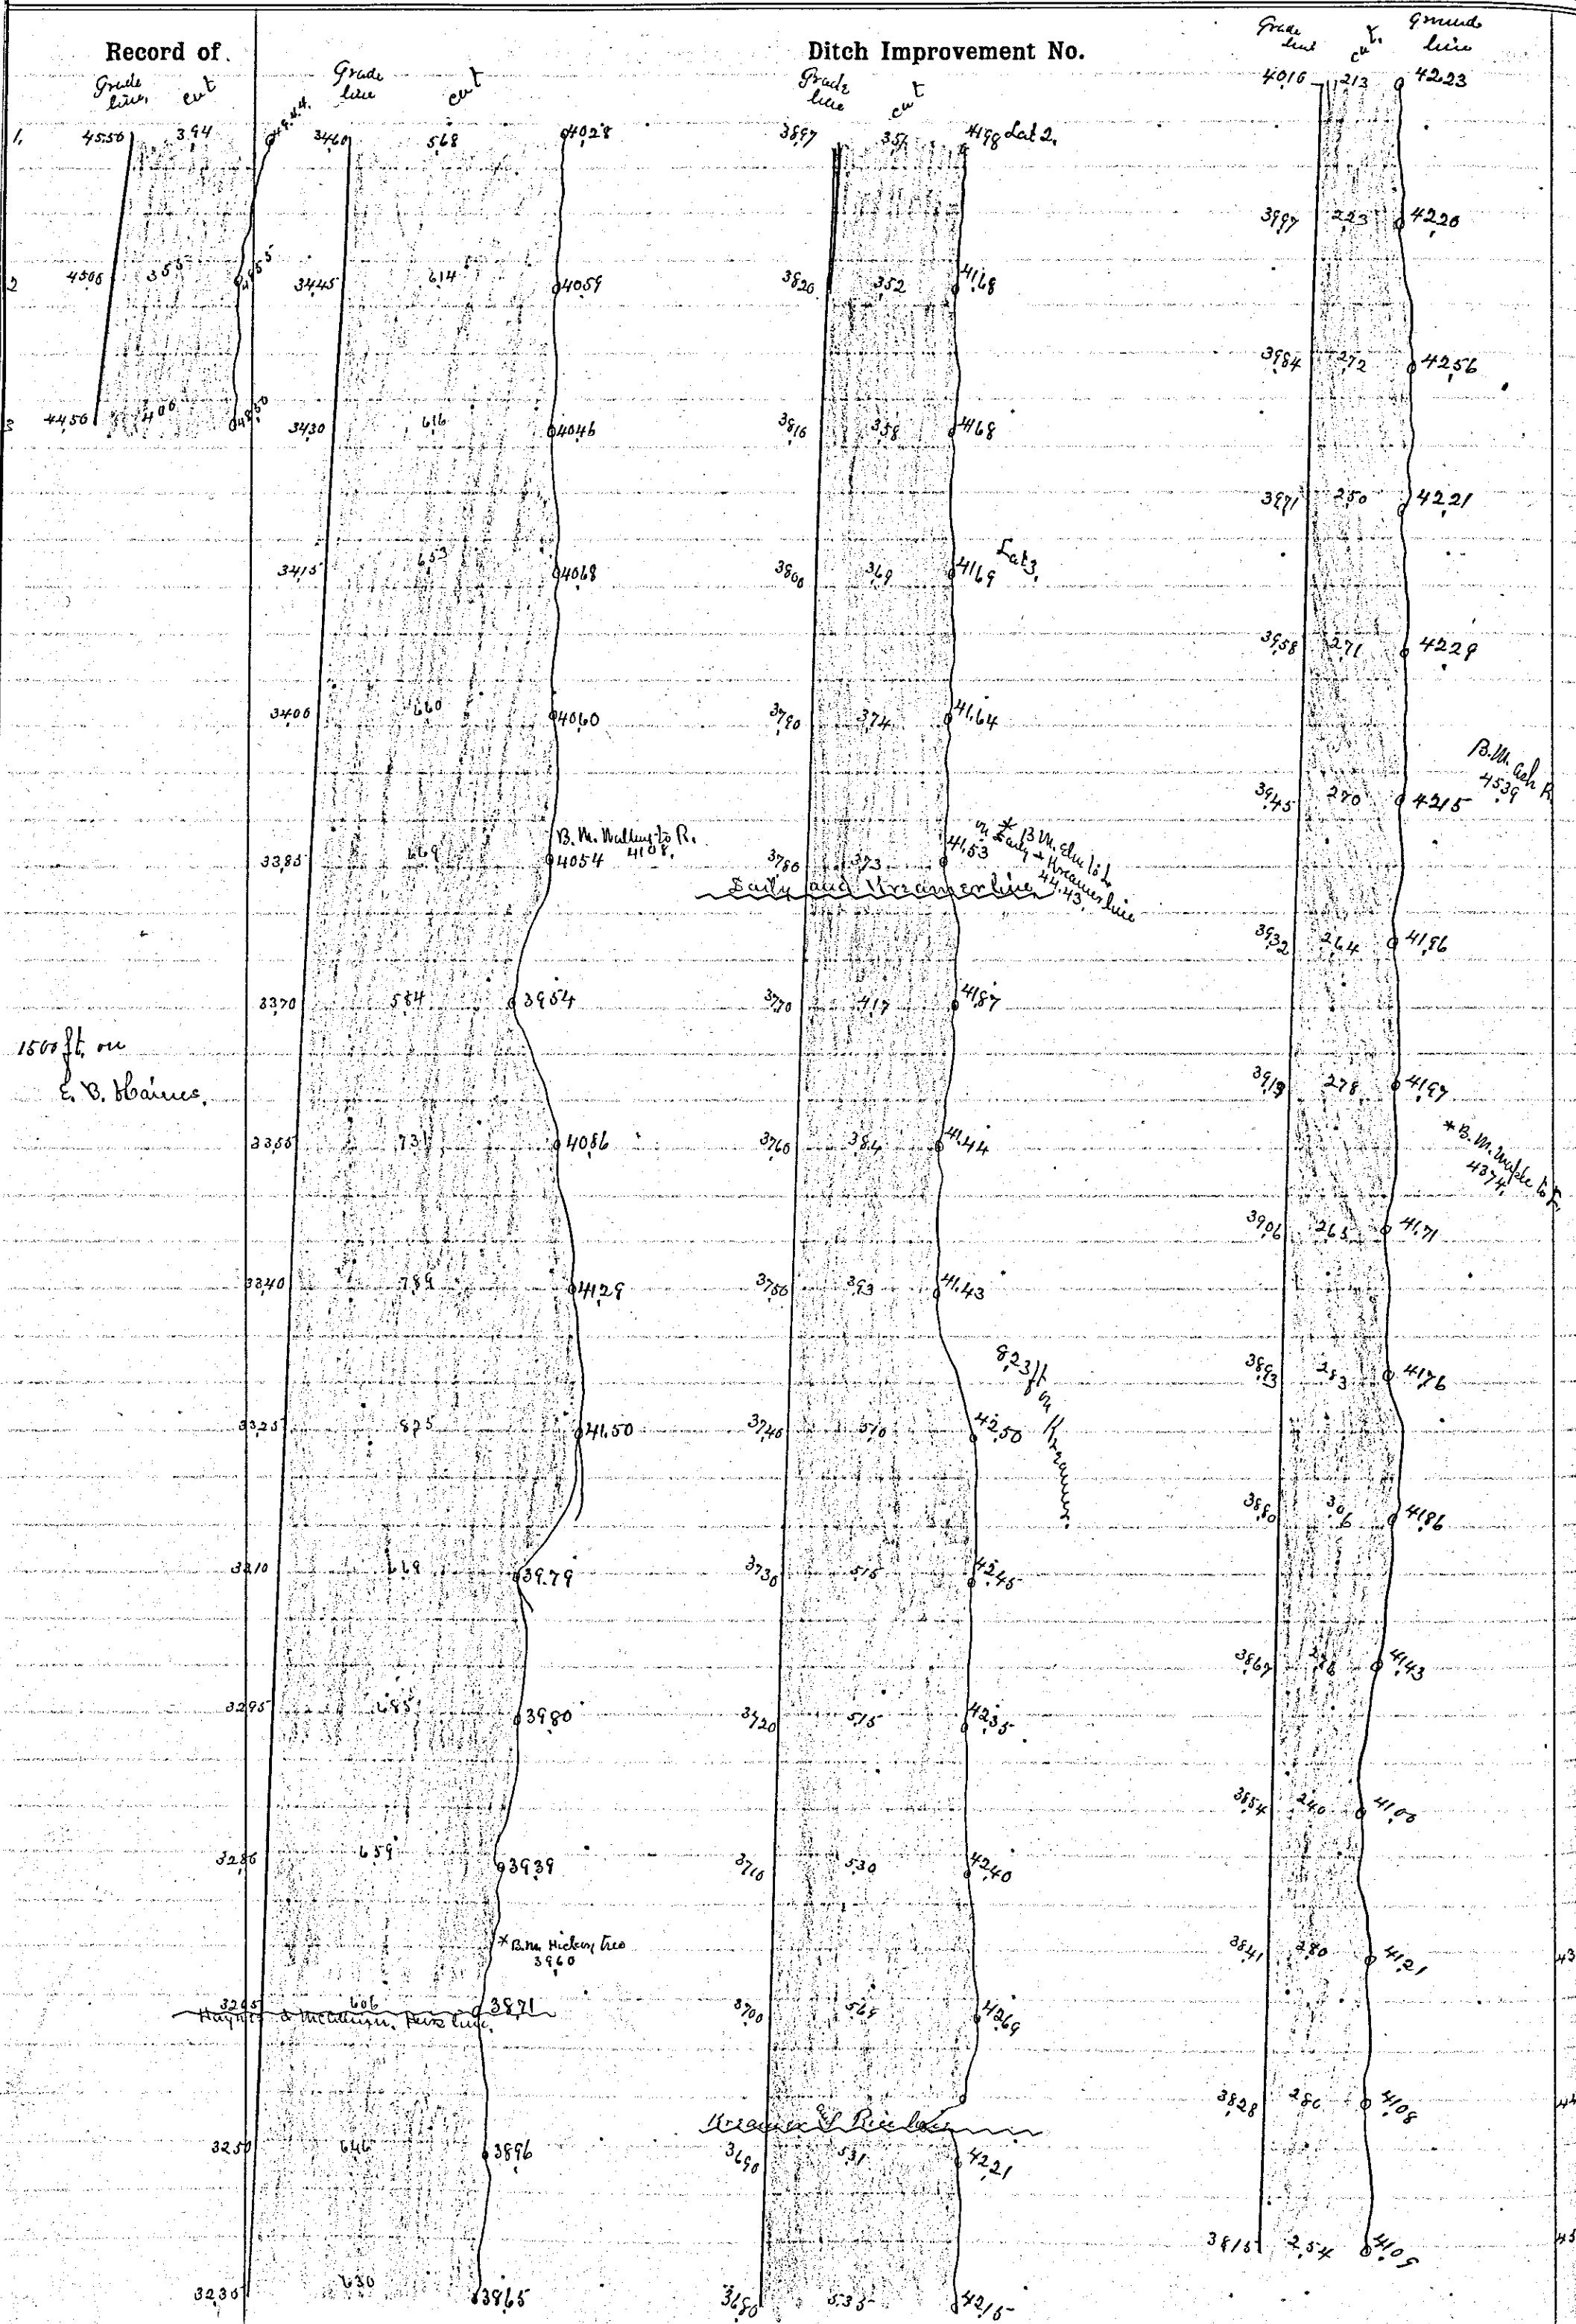 Record of
Ditch Improvement No.
Grade line, cut
1. 45.50 3.94
2 45.00 3.55
3 44.50 4.00
1500 ft. on
E. B. Haines.
Grade line cut
34.60 5.68 40.28
34.45 6.14 40.59
34.30 6.16 40.46
34.15 6.53 40.68
34.00 6.60 40.60
B. M. 41.08.
33.85 6.69 40.54
33.70 5.84 39.54
33.55 7.31 40.86
33.40 7.89 41.29
33.25 8.25 41.50
33.10 6.69 39.79
32.95 6.85 39.80
32.80 6.59 39.39
* B.M. Hickory tree
39.60
32.65 6.06 38.71
32.50 6.46 38.96
32.35 6.30 38.65
Grade line cut
38.97 41.98 Lat 2.
38.20 3.52 41.68
38.10 3.58 41.68
38.00 3.69 41.69 Lat 3.
37.90 3.74 41.64
37.80 3.73 41.53
* B M. Elm to L
on Daily & Kreamer line
44.43.
Daily and Kreamer line
37.70 4.17 41.87
37.60 3.84 41.44
37.50 3.93 41.43
823 ft on Kreamer
37.40 5.10 42.50
37.30 5.15 42.45
37.20 5.15 42.35
37.10 5.30 42.40
37.00 5.69 42.69
Kreamer &
36.90 5.31 42.21
36.80 5.35 42.15
Grade line cut. Ground line
40.10 2.13 42.23
39.97 2.23 42.20
39.84 2.72 42.56
39.71 2.50 42.21
39.58 2.71 42.29
B.M. Ash R
45.39
39.45 2.70 42.15
39.32 2.64 41.96
39.19 2.78 41.97
* B. M. Maple to L
43.74.
39.06 2.65 41.71
38.93 2.83 41.76
38.80 3.06 41.86
38.67 41.43
38.54 2.40 41.00
38.41 2.80 41.21
38.28 2.80 41.08
38.15 2.54 41.05